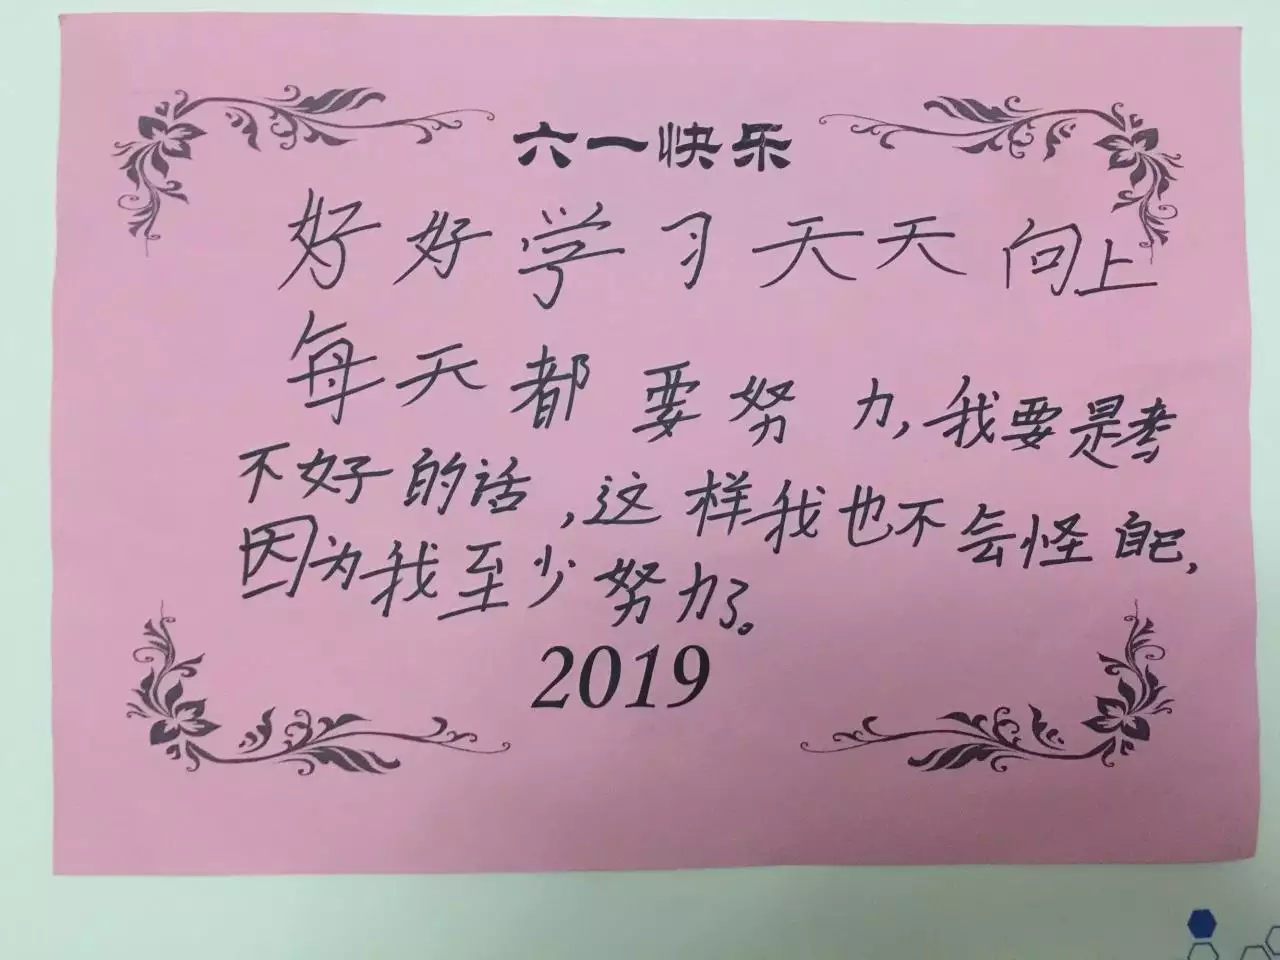 六一快乐
好好学习天天向上
每天都要努力,我要是考
不好的话,这样我也不会怪自己,
因为我至少努力了。
2019